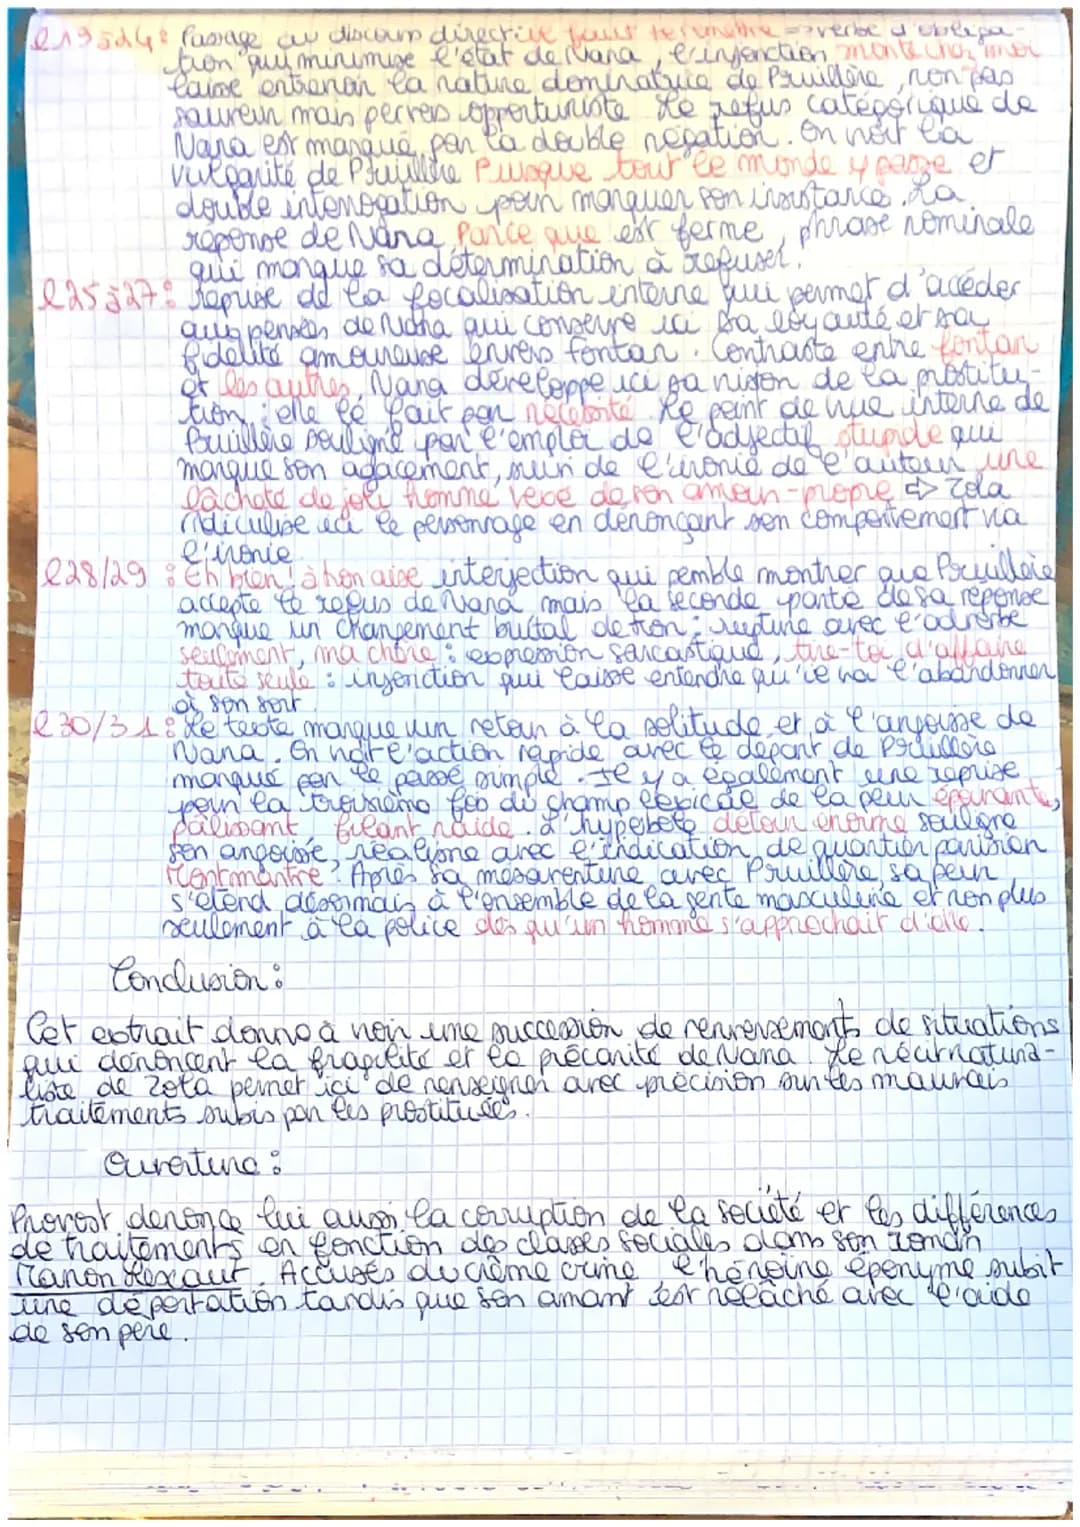 l19 à 24 : Passage au discours direct: il faut te remettre => verbe d'obliga-
tion qui minimise l'état de Nana, l'injonction monte chez moi
laisse entrevoir la nature dominatrice de Prullière, non pas
sauveur mais pervers opportuniste. Le refus catégorique de
Nana est marqué par la double négation. On voit la
vulgarité de Prullière Puisque tout le monde y passe et
double interrogation pour marquer son insistance. La
réponse de Nana, Parce que est ferme, phrase nominale
qui marque sa détermination à refuser.
l25 à 27 : Reprise de la focalisation interne qui permet d'accéder
aux pensées de Nana qui conserve ici sa loyauté et sa
fidélité amoureuse envers Fontan. Contraste entre Fontan
et les autres, Nana développe ici sa vision de la prostitu-
tion : elle le fait par nécessité. Le point de vue interne de
Prullière souligné par l'emploi de l'adjectif stupide qui
marque son agacement, suivi de l'ironie de l'auteur une
lâcheté de joli homme vexé de son amour-propre => Zola
ridiculise ici le personnage en dénonçant son comportement via
l'ironie.
l28/29 : Eh bien! à ton aise interjection qui semble montrer que Prullière
accepte le refus de Nana mais la seconde partie de sa réponse
marque un changement brutal de ton : rupture avec l'adverbe
seulement, ma chère : expression sarcastique, tire-toi d'affaire
toute seule : injonction qui laisse entendre qu'il va l'abandonner
à son sort.
l30/31 : Le texte marque un retour à la solitude et à l'angoisse de
Nana. On note l'action rapide avec le départ de Prullière
marqué par le passé simple. Il y a également une reprise
pour la troisième fois du champ lexical de la peur épouvante,
pâlissant, filant raide. L'hyperbole détour énorme souligne
son angoisse, réalisme avec l'indication de quartier parisien
Montmartre. Après sa mésaventure avec Prullière, sa peur
s'étend désormais à l'ensemble de la gente masculine et non plus
seulement à la police dès qu'un homme s'approchait d'elle.
Conclusion :
Cet extrait donne à voir une succession de renversements de situations
qui dénoncent la fragilité et la précarité de Nana. Le récit natura-
liste de Zola permet ici de renseigner avec précision sur les mauvais
traitements subis par les prostituées.
Ouverture :
Prévost dénonce lui aussi la corruption de la société et les différences
de traitements en fonction des classes sociales dans son roman
Manon Lescaut. Accusés du crime l'héroïne éponyme subit
une déportation tandis que son amant est relâché avec l'aide
de son père.